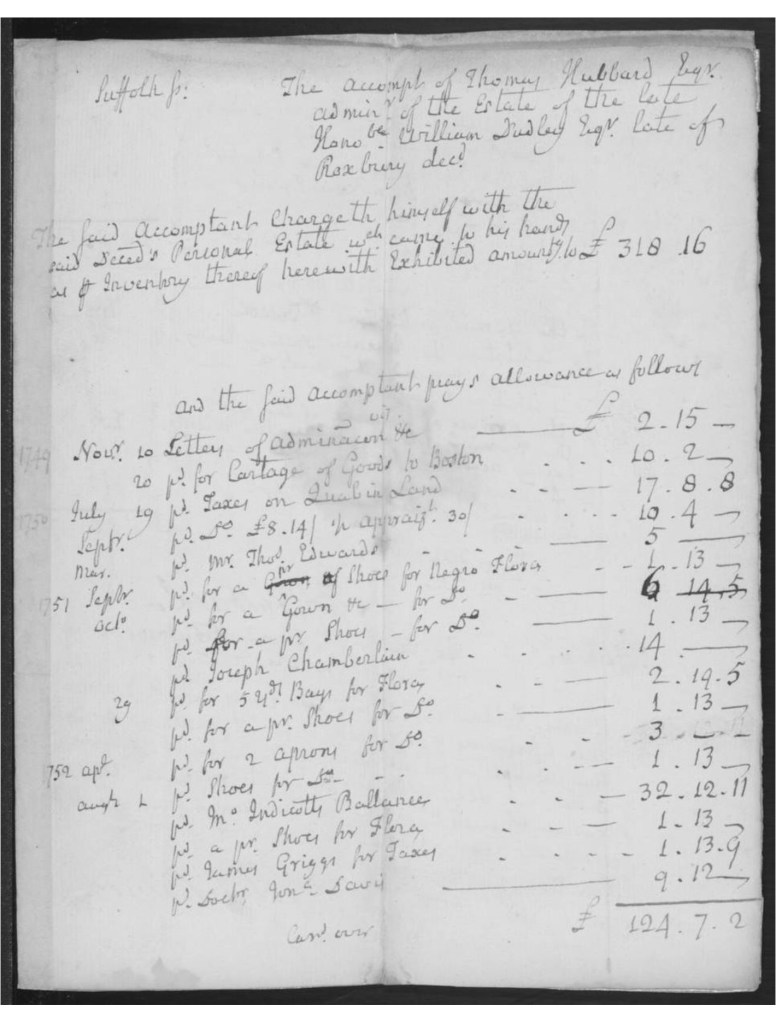 Suffolk ss:
The Accompt of Thomas Hubbard Esqr.
admin.r of the Estate of the late
Honoble. William Dudley Esqr. late of
Roxbury decd.
The said Accomptant Chargeth himself with the
said Deced's Personal Estate wch. came to his hands
as # Inventory thereof herewith Exhibited amountg. to £ 318 . 16
And the said Accomptant prays allowance as follows
viz.
1749 Novr. 10 Letters of Adminacon &c £ 2 . 15 —
20 pd. for Cartage of Goods to Boston 10 . 2 —
1750 July 19 pd. Taxes on Land 17 . 8 . 8
Septr. pd. Do. £8.14/ & appraizt. 30/ 10 . 4 —
Mar. pd. Mr. Thos. Edwards 5 —
1751 Septbr. pd. for a Gown of pr Shoes for Negro Flora 1 . 13 —
Octo. pd. for a Gown &c — for Do. 6 14 . 5
pd. for a pr Shoes — for Do. 1 . 13 —
pd. Joseph Chamberlain 14 —
29 pd. for 5 yds. Bays for Flora 2 . 19 . 5
pd. for a pr. Shoes for Do. 1 . 13 —
pd. for 2 aprons for Do. 3 — —
1752 apl. pd. Shoes for Do. 1 . 13 —
augt. 1 pd. Mo. Indicotts Ballance 32 . 12 . 11
pd. a pr. Shoes for Flora 1 . 13 —
pd. James Griggs for Taxes 1 . 13 . 9
pd. Doctr. Jona. Davis 9 . 12 —
Card. over £ 124 . 7 . 2